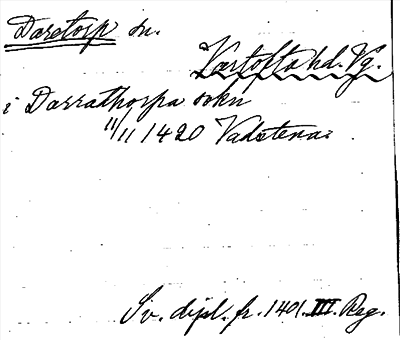 Daretorp sn.
Vartofta hd. Vg.
i Darrathorpa sokn
11/11 1420 Vadstena:
Sv. dipl. fr. 1401. III. Reg.